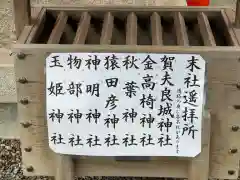 末社遥拝所
賀夫良城神社
金高椅神社
秋葉神社
猿田彦神社
神明神社
物部神社
玉姫神社